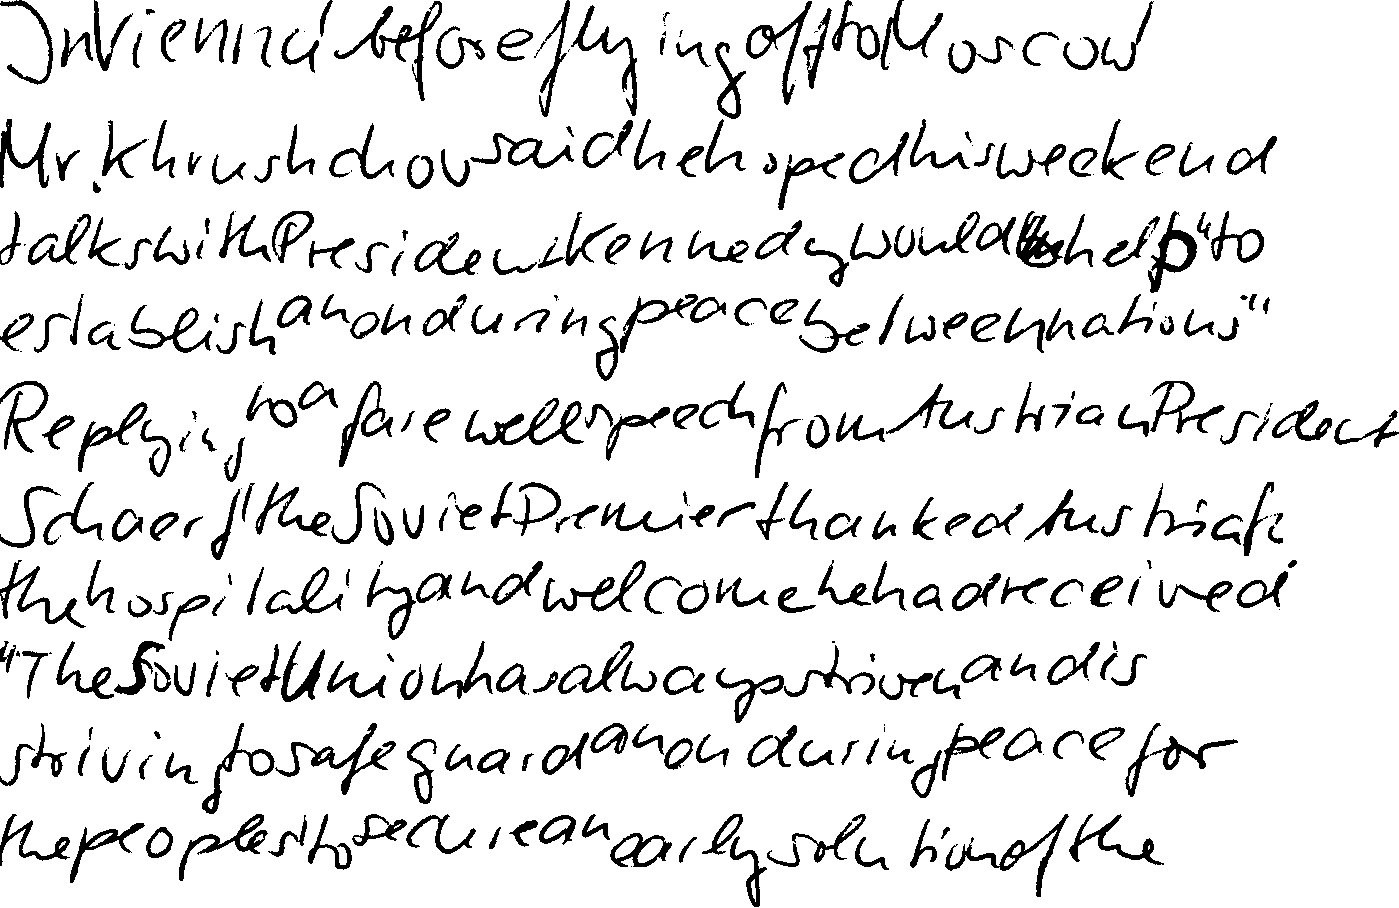 In Vienna before flying off to Moscow
Mr. Khrushchov said he hoped his weekend
talks with President Kennedy would help "to
establish an onduring peace between nations"
Replying to a farewell speech from Austrian President
Schaerf the Soviet Premier thanked Austria for
the hospitality and welcome he had received
"The Soviet Union has always striven and is
striving to safeguard an onduring peace for
the peoples, to secure an early solution of the